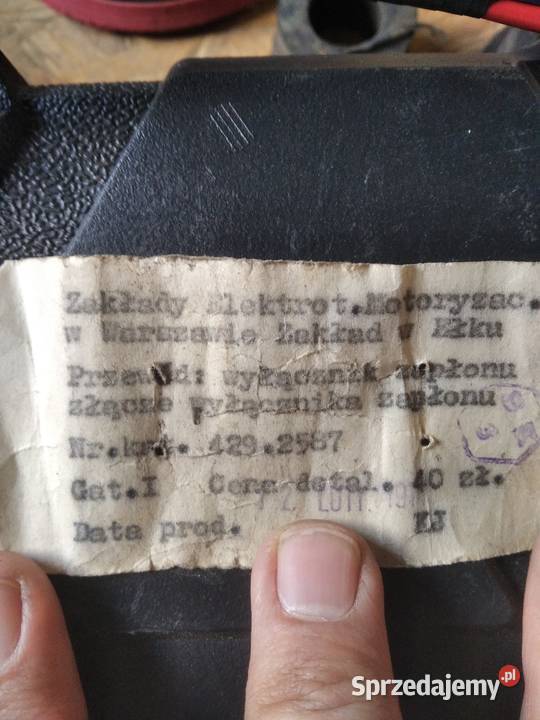 Zakłady Elektrot.Motoryzac.
w Warszawie Zakład w Ełku
Przewód: wyłącznik zapłonu
złącze wyłącznika zapłonu
Nr.kat. 429.2587
Gat.I Cena detal. 40 zł.
Data prod. KJ
Sprzedajemy.pl